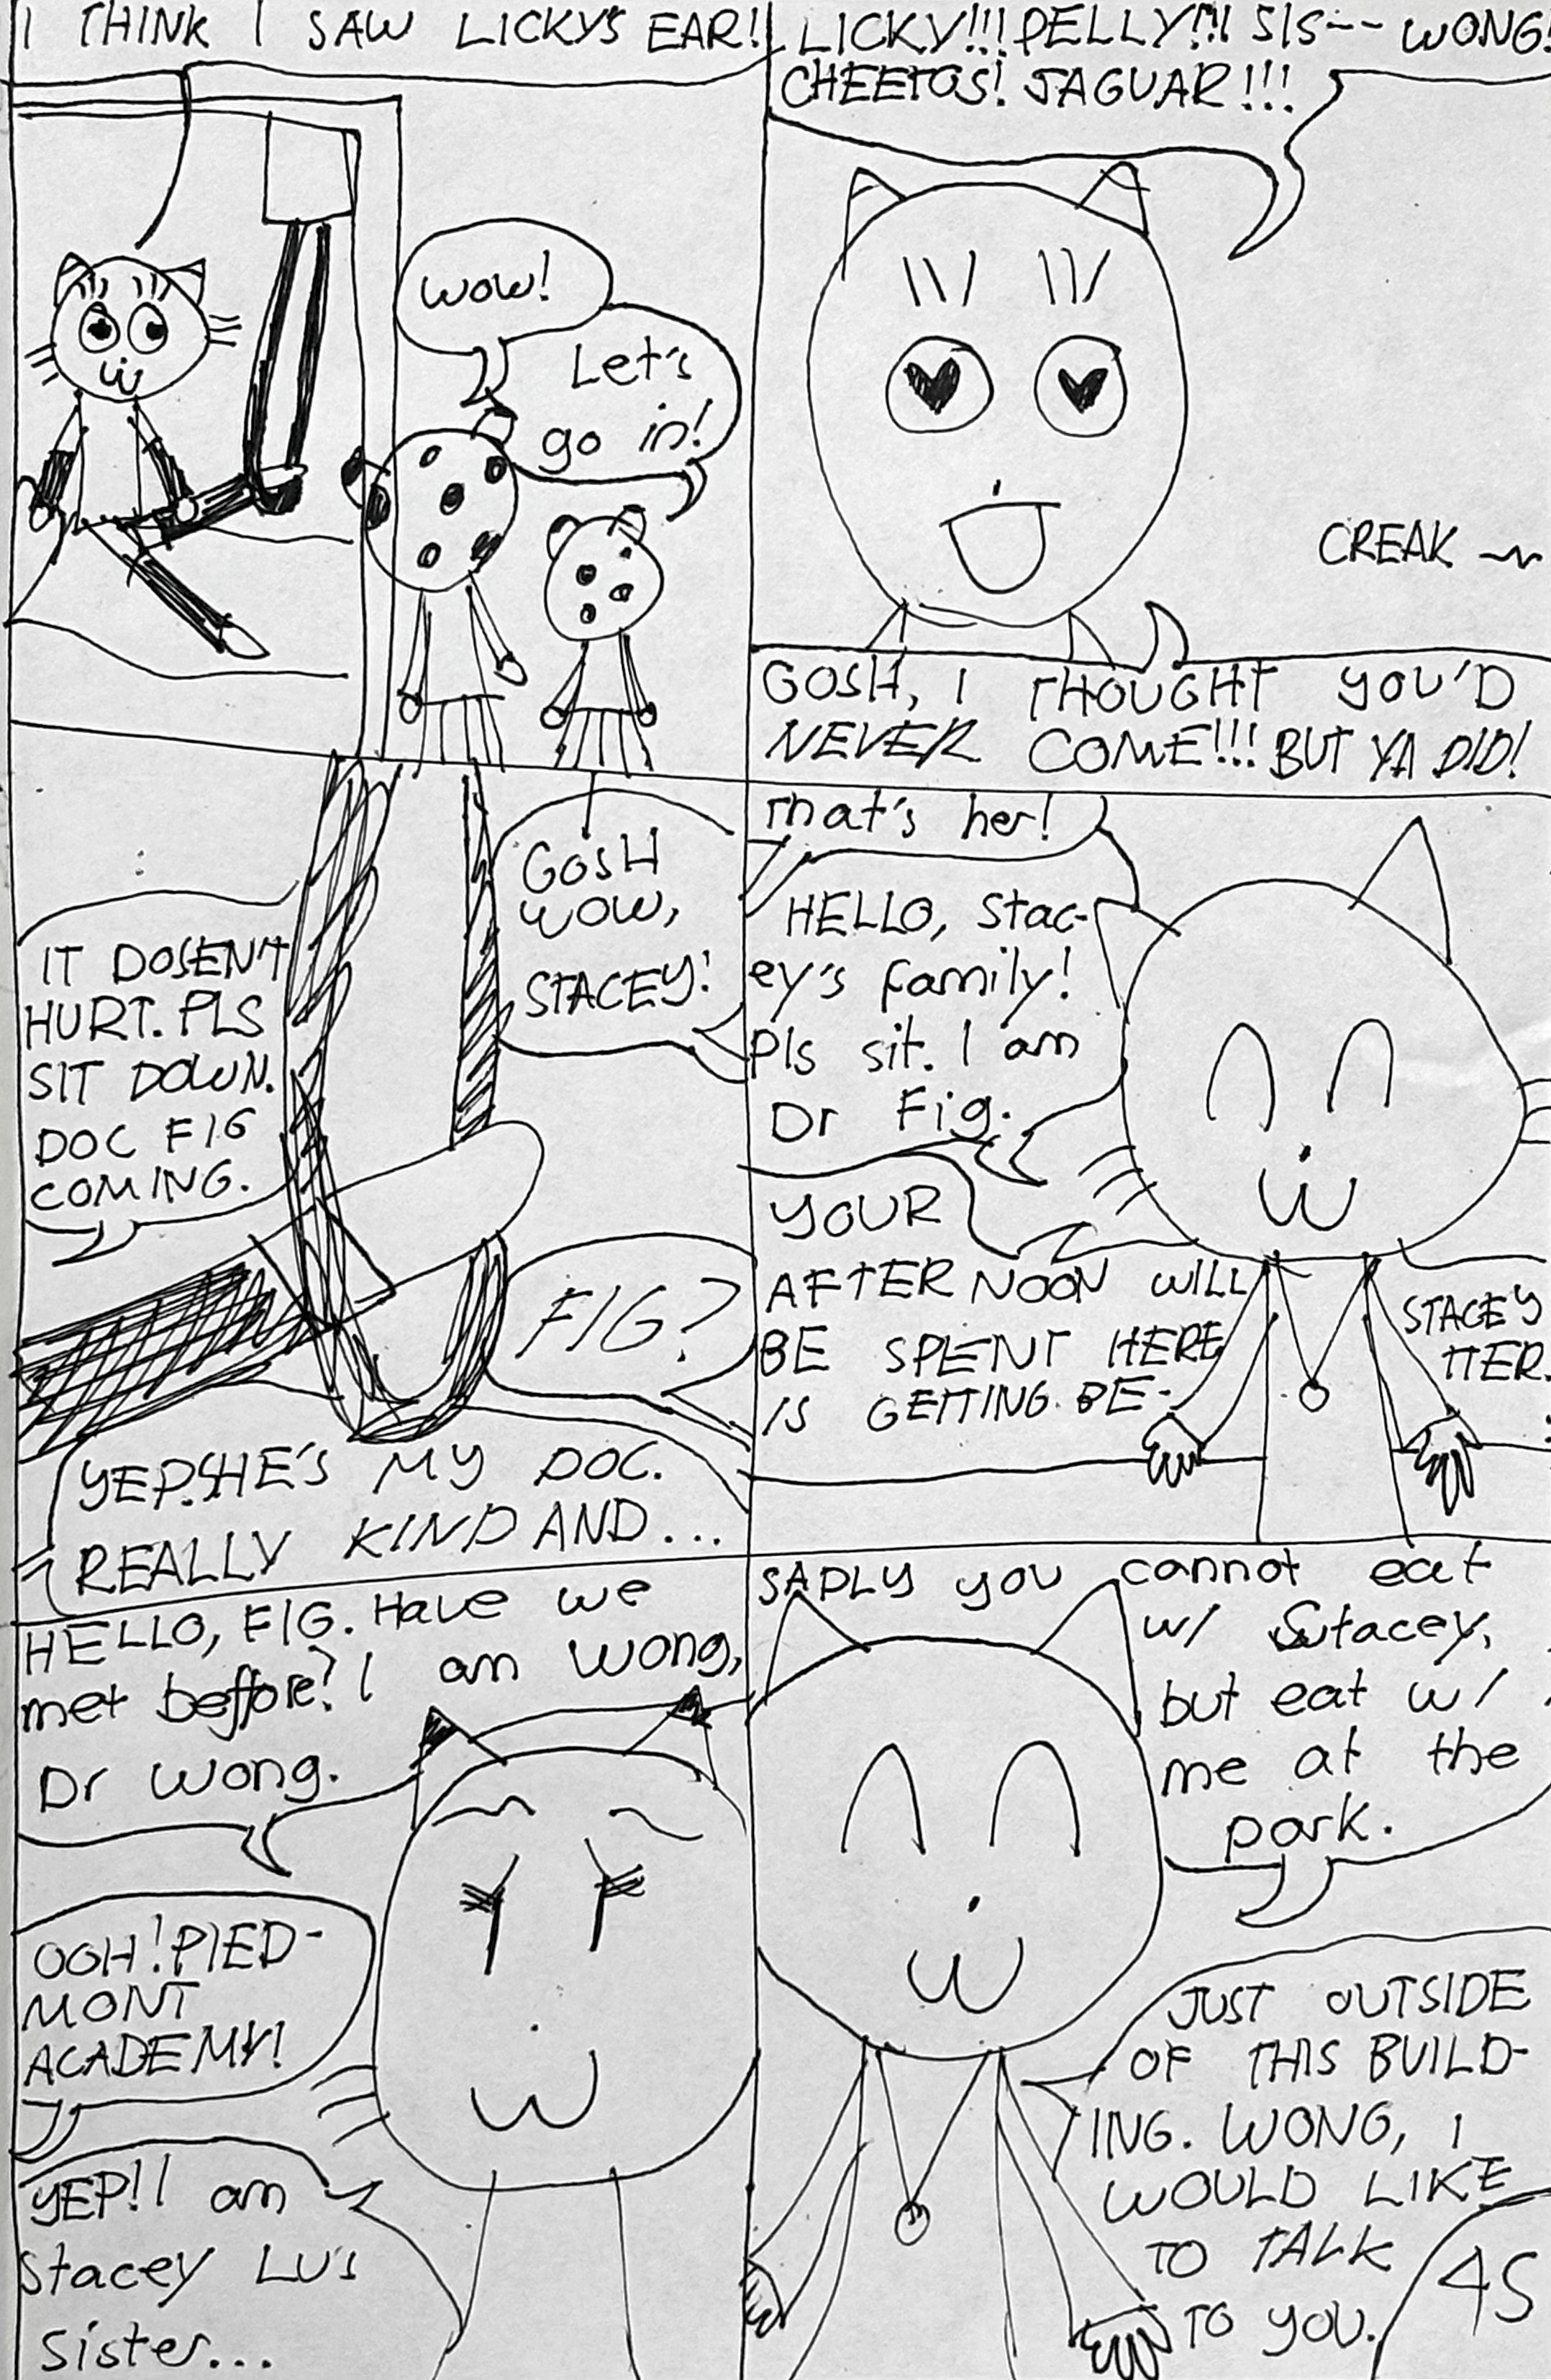 I THINK I SAW LICKY'S EAR!
wow!
Let's
go in!
LICKY!!! PELLY!!! SIS-- WONG!
CHEETOS! JAGUAR!!!
CREAK
GOSH, I THOUGHT YOU'D
NEVER COME!!! BUT YA DID!
IT DOSENT
HURT. PLS
SIT DOWN.
DOC FIG
COMING.
GOSH
WOW,
STACEY!
FIG?
YEP. SHE'S MY DOC.
REALLY KIND AND...
That's her!
HELLO, Stac-
ey's family!
Pls sit. I am
Dr Fig.
YOUR
AFTERNOON WILL
BE SPENT HERE
IS GETTING. BE-
STACEY
TTER.
HELLO, FIG. Have we
met beffore? I am Wong,
Dr Wong.
OOH! PIED-
MONT
ACADEMY!
YEP! I am
Stacey Lu's
Sister...
SADLY you cannot eat
w/ Sutacey,
but eat w/
me at the
park.
JUST OUTSIDE
OF THIS BUILD-
ING. WONG, I
WOULD LIKE
TO TALK
TO YOU.
45